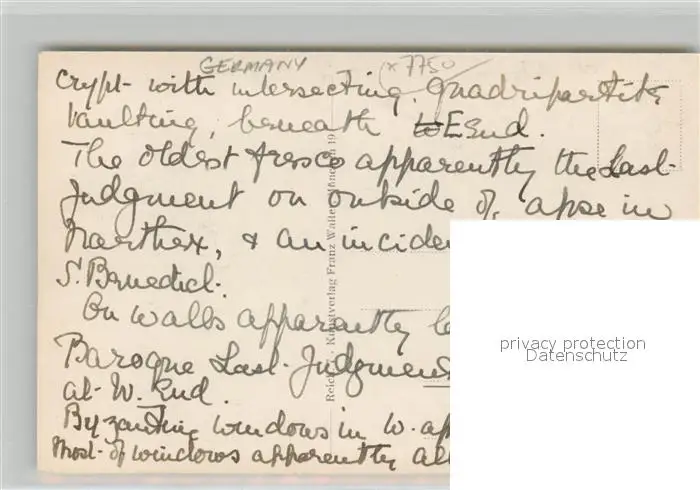 GERMANY
x7750
Crypt - with intersecting, Quadripartite
Vaulting, beneath E End.
The oldest fresco apparently the Last
Judgment on outside of apse in
Narthex, & an incide
S. Benedict.
On walls apparently
Baroque Last Judgment
at W. End.
Byzantine windows in W. ap
Most of windows apparently al
Kunstverlag Franz Walter, München 19
privacy protection
Datenschutz